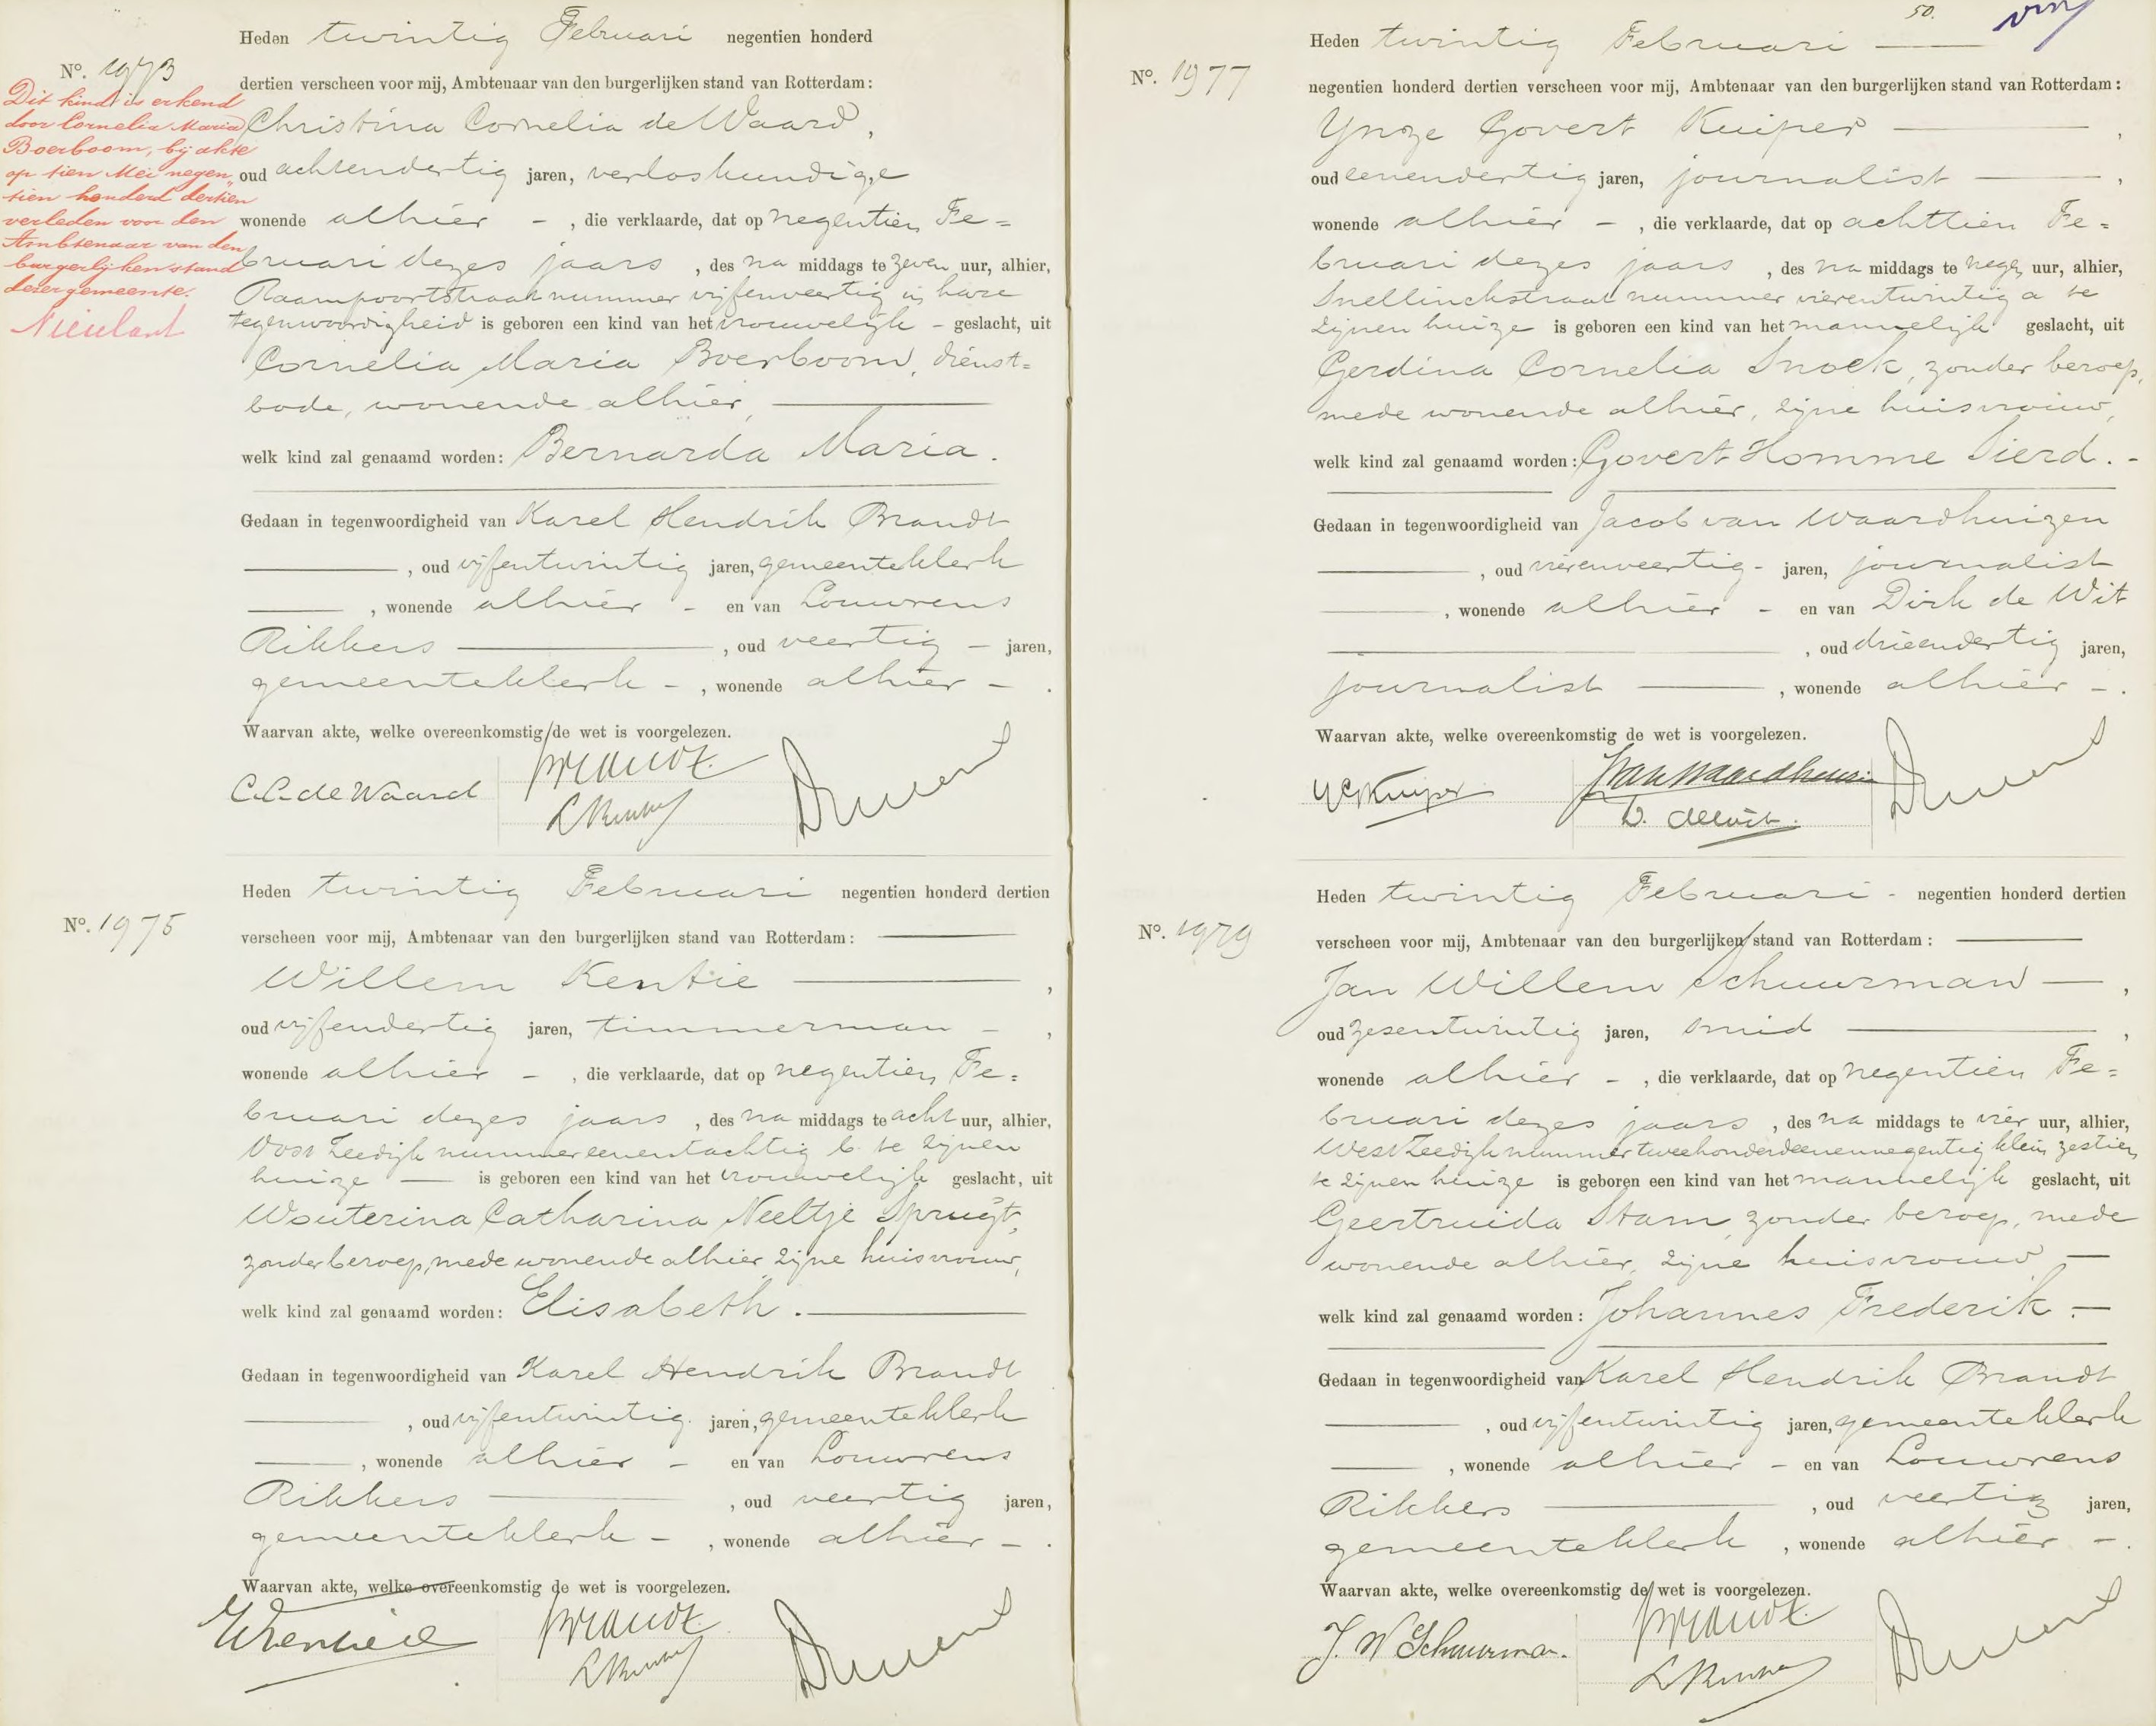 Heden twintig Februari negentien honderd
No. 1973
dertien verscheen voor mij, Ambtenaar van den burgerlijken stand van Rotterdam:
Christina Cornelia de Waard,
oud achtendertig jaren, verloskundige
wonende alhier - , die verklaarde, dat op negentien Fe=
bruari dezes jaars , des na middags te zeven uur, alhier,
Raampoortstraat nummer vijfenveertig in hare
tegenwoordigheid is geboren een kind van het vrouwelijk - geslacht, uit
Cornelia Maria Boerboom, dienst=
bode, wonende alhier,
welk kind zal genaamd worden: Bernarda Maria.
Gedaan in tegenwoordigheid van Karel Hendrik Brandt
, oud vijfentwintig jaren, gemeenteklerk
, wonende alhier - en van Louwrens
Rikkers , oud veertig - jaren,
gemeenteklerk - , wonende alhier - .
Waarvan akte, welke overeenkomstig de wet is voorgelezen.
C.C. de Waard Brandt.
Dit kind is erkend
door Cornelia Maria
Boerboom, bij akte
op tien Mei negen
tien honderd dertien
verleden voor den
Ambtenaar van den
burgerlijken stand
dezer gemeente.
Nieulant
Heden twintig Februari negentien honderd dertien
No. 1975
verscheen voor mij, Ambtenaar van den burgerlijken stand van Rotterdam:
Willem Kentie ,
oud vijfendertig jaren, timmerman - ,
wonende alhier - , die verklaarde, dat op negentien Fe=
bruari dezes jaars , des na middags te acht uur, alhier,
Oost Zeedijk nummer eenentachtig b te zijnen
huize is geboren een kind van het vrouwelijk geslacht, uit
Wouterina Catharina Neeltje Spruijt,
zonder beroep, mede wonende alhier, zijne huisvrouw,
welk kind zal genaamd worden: Elisabeth.
Gedaan in tegenwoordigheid van Karel Hendrik Brandt
, oud vijfentwintig jaren, gemeenteklerk
, wonende alhier - en van Louwrens
Rikkers , oud veertig jaren,
gemeenteklerk - , wonende alhier - .
Waarvan akte, welke overeenkomstig de wet is voorgelezen.
WKentie Brandt.
50.
Heden twintig Februari
No. 1977
negentien honderd dertien verscheen voor mij, Ambtenaar van den burgerlijken stand van Rotterdam:
Ynze Govert Kuiper ,
oud eenendertig jaren, journalist ,
wonende alhier - , die verklaarde, dat op achttien Fe=
bruari dezes jaars , des na middags te negen uur, alhier,
Snellinckstraat nummer vierentwintig a te
zijnen huize is geboren een kind van het mannelijk geslacht, uit
Gerdina Cornelia Snoek, zonder beroep,
mede wonende alhier, zijne huisvrouw,
welk kind zal genaamd worden: Govert Homme Sierd. -
Gedaan in tegenwoordigheid van Jacob van Waardhuizen
, oud vierenveertig - jaren, journalist
, wonende alhier - en van Dirk de Wit
, oud drieendertig jaren,
journalist , wonende alhier - .
Waarvan akte, welke overeenkomstig de wet is voorgelezen.
YGKuiper JvanWaardhuizen
D. de Wit.
Heden twintig Februari - negentien honderd dertien
No. 1979
verscheen voor mij, Ambtenaar van den burgerlijken stand van Rotterdam:
Jan Willem Schuurman ,
oud zesentwintig jaren, smid ,
wonende alhier - , die verklaarde, dat op negentien Fe=
bruari dezes jaars , des na middags te vier uur, alhier,
West Zeedijk nummer tweehonderdeenennegentig klein zestien
te zijnen huize is geboren een kind van het mannelijk geslacht, uit
Geertruida Stam, zonder beroep, mede
wonende alhier, zijne huisvrouw
welk kind zal genaamd worden: Johannes Frederik.
Gedaan in tegenwoordigheid van Karel Hendrik Brandt
, oud vijfentwintig jaren, gemeenteklerk
, wonende alhier - en van Louwrens
Rikkers , oud veertig jaren,
gemeenteklerk , wonende alhier - .
Waarvan akte, welke overeenkomstig de wet is voorgelezen.
J. W Schuurman. Brandt.